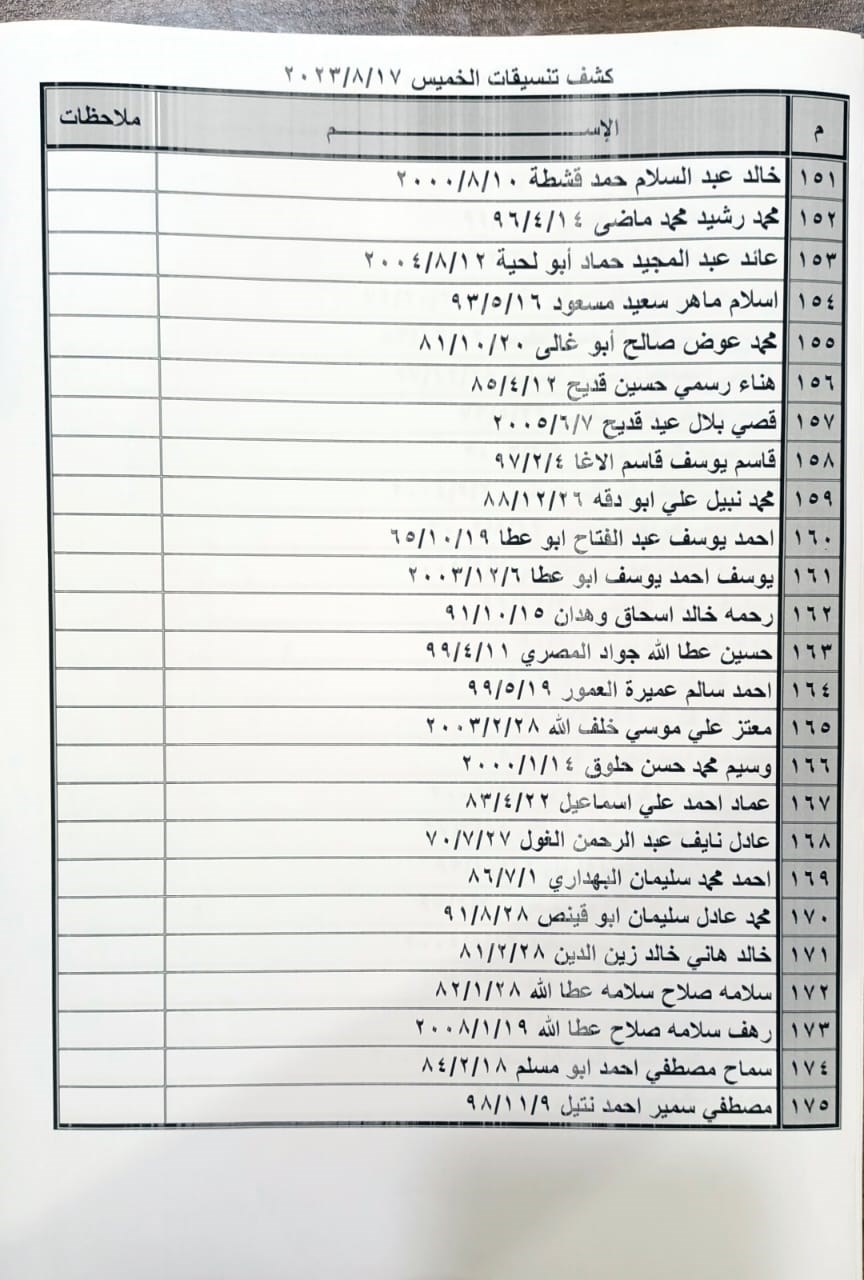 كشف تنسيقات الخميس ٢٠٢٣/٨/١٧
م الإســـــــم ملاحظات
١٥١ خالد عبد السلام حمد قشطة ٢٠٠٠/٨/١٠
١٥٢ محمد رشيد محمد ماضى ٩٦/٤/١٤
١٥٣ عائد عبد المجيد حماد أبو لحية ٢٠٠٤/٨/١٢
١٥٤ اسلام ماهر سعيد مسعود ٩٣/٥/١٦
١٥٥ محمد عوض صالح أبو غالى ٨١/١٠/٢٠
١٥٦ هناء رسمي حسين قديح ٨٥/٤/١٢
١٥٧ قصي بلال عيد قديح ٢٠٠٥/٦/٧
١٥٨ قاسم يوسف قاسم الاغا ٩٧/٢/٤
١٥٩ محمد نبيل علي ابو دقه ٨٨/١٢/٢٦
١٦٠ احمد يوسف عبد الفتاح ابو عطا ٦٥/١٠/١٩
١٦١ يوسف احمد يوسف ابو عطا ٢٠٠٣/١٢/٦
١٦٢ رحمه خالد اسحاق وهدان ٩١/١٠/١٥
١٦٣ حسين عطا الله جواد المصري ٩٩/٤/١١
١٦٤ احمد سالم عميرة العمور ٩٩/٥/١٩
١٦٥ معتز علي موسي خلف الله ٢٠٠٣/٢/٢٨
١٦٦ وسيم محمد حسن حلوق ٢٠٠٠/١/١٤
١٦٧ عماد احمد علي اسماعيل ٨٣/٤/٢٢
١٦٨ عادل نايف عبد الرحمن الغول ٧٠/٧/٢٧
١٦٩ احمد محمد سليمان البهداري ٨٦/٧/١
١٧٠ محمد عادل سليمان ابو قينص ٩١/٨/٢٨
١٧١ خالد هاني خالد زين الدين ٨١/٢/٢٨
١٧٢ سلامه صلاح سلامه عطا الله ٨٢/١/٢٨
١٧٣ رهف سلامه صلاح عطا الله ٢٠٠٨/١/١٩
١٧٤ سماح مصطفي احمد ابو مسلم ٨٤/٢/١٨
١٧٥ مصطفي سمير احمد نتيل ٩٨/١١/٩